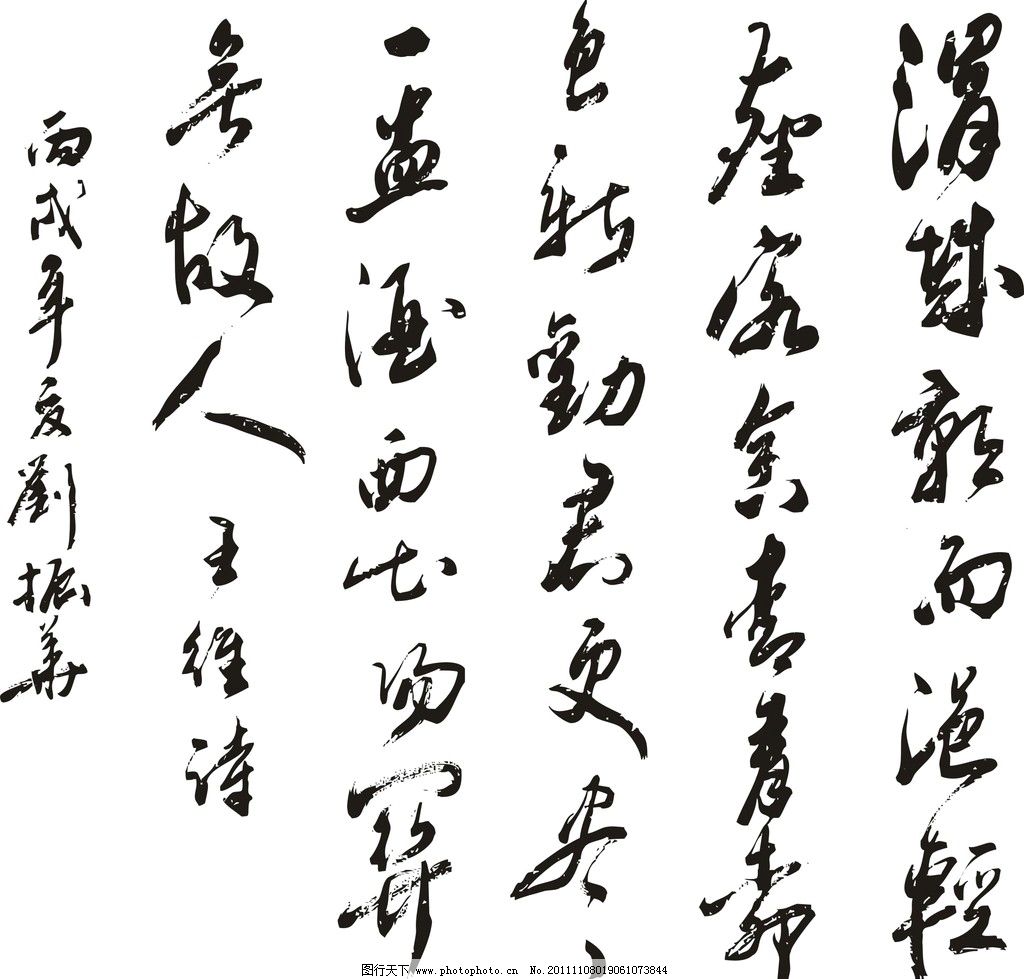 渭城朝雨浥輕
塵客舍青青柳
色新勸君更盡
一盃酒西出陽關
無故人 王維詩
丙戌年夏劉振華
图行天下 www.photophoto.cn No.20111108019061073844